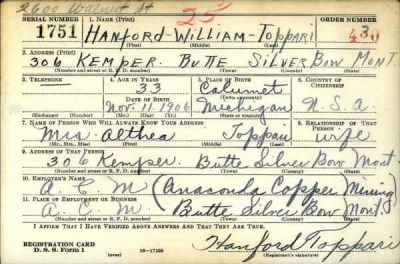 2600 Walnut St
25
SERIAL NUMBER 1. NAME (Print) ORDER NUMBER
1751 HANFORD-WILLIAM-TOPPARI 430
(First) (Middle) (Last)
2. ADDRESS (Print)
306 KEMPER. BUTTE SILVER BOW MONT.
(Number and street or R. F. D. number) (Town) (County) (State)
3. TELEPHONE 4. AGE IN YEARS 5. PLACE OF BIRTH 6. COUNTRY OF CITIZENSHIP
33 Calumet
DATE OF BIRTH (Town or county)
Nov. 11, 1906 Michigan U.S.A.
(Exchange) (Number) (Mo.) (Day) (Yr.) (State or country)
7. NAME OF PERSON WHO WILL ALWAYS KNOW YOUR ADDRESS 8. RELATIONSHIP OF THAT PERSON
Mrs. Althea Toppari wife
(Mr., Mrs., Miss) (First) (Middle) (Last)
9. ADDRESS OF THAT PERSON
306 Kemper. Butte Silver Bow Mont.
(Number and street or R. F. D. number) (Town) (County) (State)
10. EMPLOYER'S NAME
A. C. M (Anaconda Copper Mining)
11. PLACE OF EMPLOYMENT OR BUSINESS
A. C. M Butte Silver Bow Mont.
(Number and street or R. F. D. number) (Town) (County) (State)
I AFFIRM THAT I HAVE VERIFIED ABOVE ANSWERS AND THAT THEY ARE TRUE.
REGISTRATION CARD
D. S. S. Form 1 (over) 16-17105 Hanford Toppari